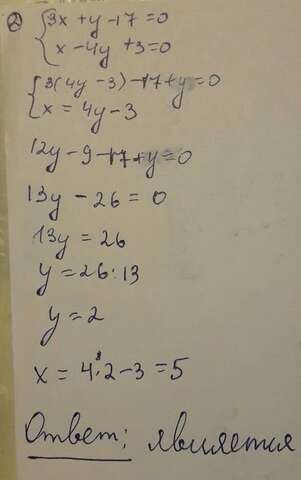 ② { 3x + y - 17 = 0
x - 4y + 3 = 0
{ 3(4y - 3) - 17 + y = 0
x = 4y - 3
12y - 9 - 17 + y = 0
13y - 26 = 0
13y = 26
y = 26 : 13
y = 2
x = 4 · 2 - 3 = 5
Ответ: является